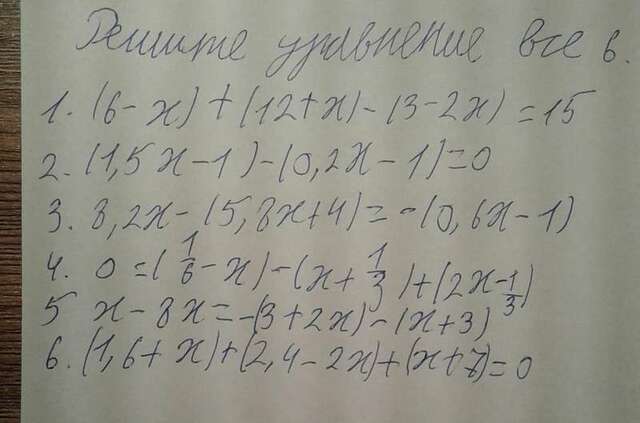 Решите уравнение все 6.
1. (6-x)+(12+x)-(3-2x)=15
2. (1,5x-1)-(0,2x-1)=0
3. 8,2x-(5,8x+4)=-(0,6x-1)
4. 0=(1/6-x)-(x+1/3)+(2x-1/3)
5 x-8x=-(3+2x)-(x+3)
6. (1,6+x)+(2,4-2x)+(x+7)=0